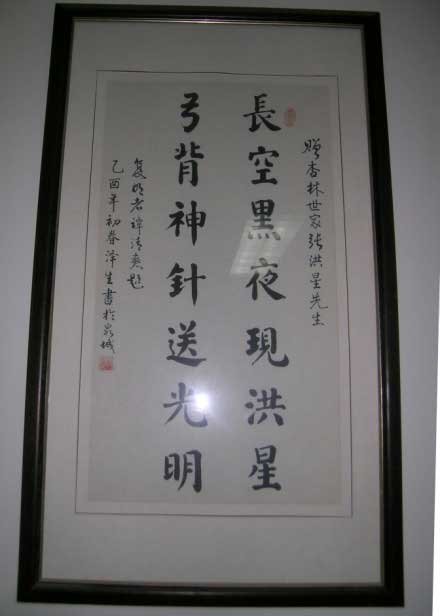 赠杏林世家张洪星先生
長空黑夜現洪星
弓背神針送光明
复明者谭清爽题
乙酉年初春泽生書於泉城